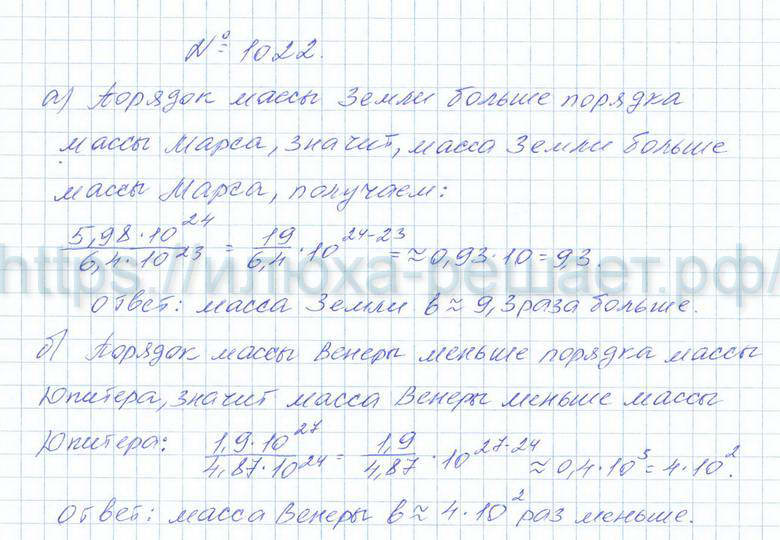 № 1022.
а) Порядок массы Земли больше порядка
массы Марса, значит, масса Земли больше
массы Марса, получаем:
5,98·10^24 / 6,4·10^23 = 19/6,4 · 10^24-23 = ≈ 0,93·10 = 9,3.
https://илюха-решает.рф/
Ответ: масса Земли в ≈ 9,3 раза больше.
б) Порядок массы Венеры меньше порядка массы
Юпитера, значит масса Венеры меньше массы
Юпитера: 1,9·10^27 / 4,87·10^24 = 1,9/4,87 · 10^27-24 ≈ 0,4·10^3 = 4·10^2.
Ответ: масса Венеры в ≈ 4·10^2 раз меньше.